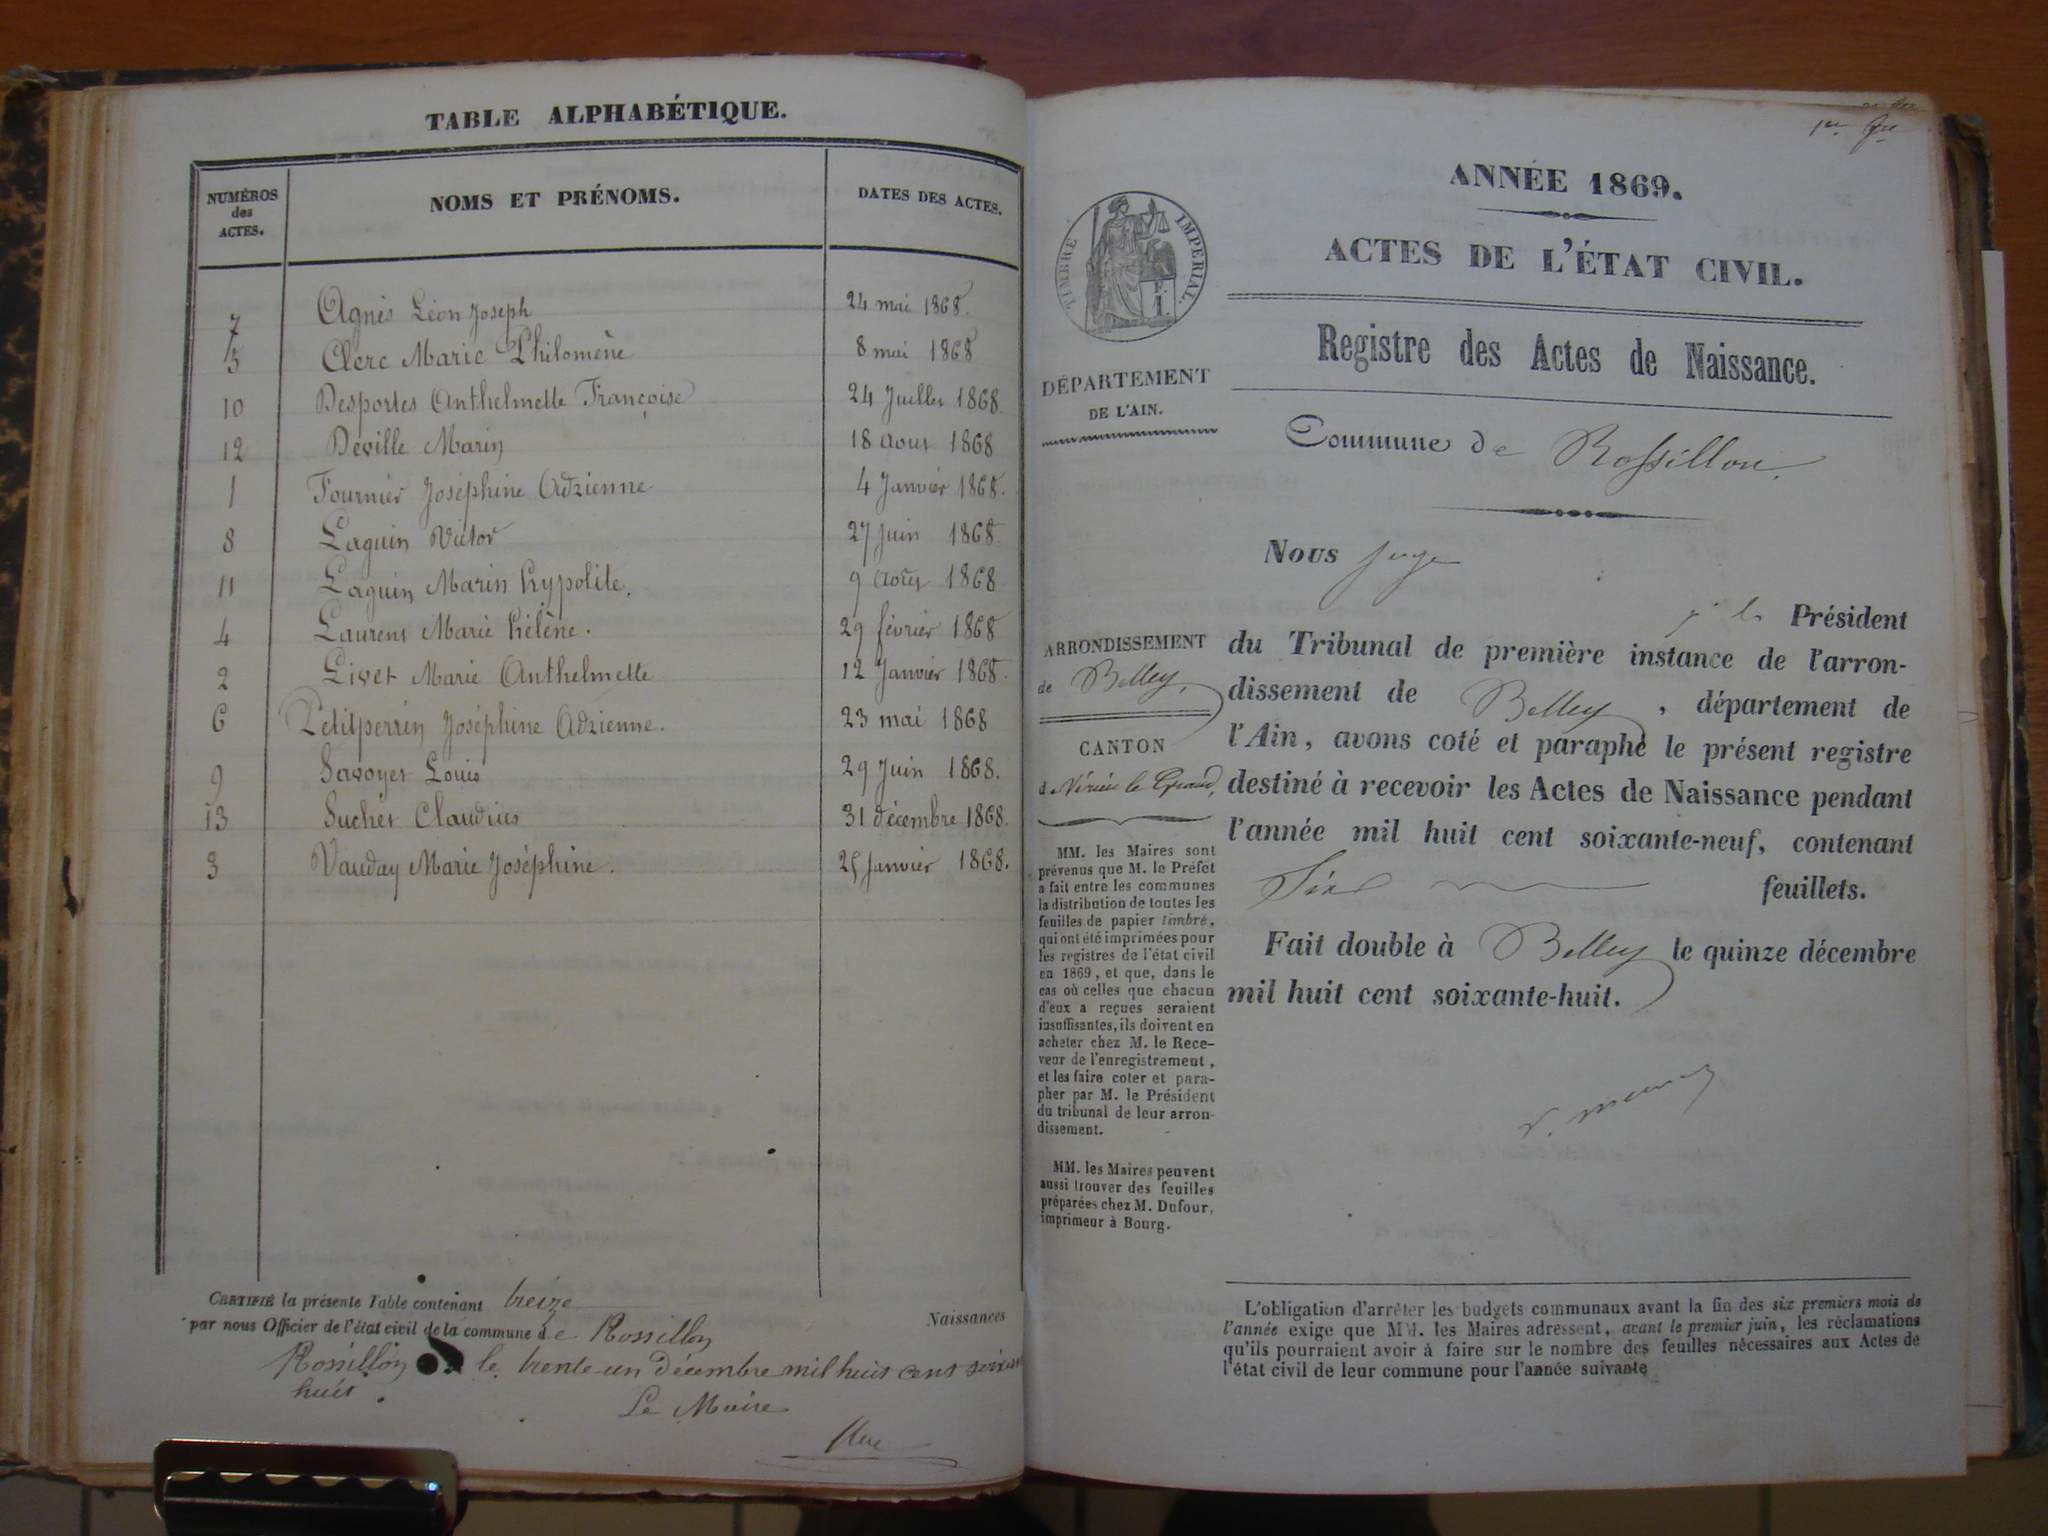 TABLE ALPHABÉTIQUE.
NUMÉROS des ACTES. NOMS ET PRÉNOMS. DATES DES ACTES.
7 Agnès Léon Joseph 24 mai 1868.
5 Clerc Marie Philomène 8 mai 1868
10 Desportes Anthelmette Françoise 24 Juillet 1868.
12 Deville Marin 18 aout 1868
1 Fournier Joséphine Adrienne 4 Janvier 1868.
8 Laguin Victor 27 Juin 1868.
11 Laguin Marin hypolite. 9 Août 1868
4 Laurent Marie hélène. 29 février 1868
2 Livet Marie Anthelmette 12 Janvier 1868.
6 Petitperrin Joséphine Adrienne. 23 mai 1868
9 Savoyet Louis 29 Juin 1868.
13 Suchet Claudius 31 décembre 1868.
3 Vauday Marie Joséphine. 25 Janvier 1868.
CERTIFIÉ la présente Table contenant treize Naissances
par nous Officier de l'état civil de la commune de Rossillon
Rossillon le trente-un décembre mil huit cent
huit.
Le Maire
ANNÉE 1869.
ACTES DE L'ÉTAT CIVIL.
Registre des Actes de Naissance.
Commune de Rossillon.
TIMBRE IMPÉRIAL.
DÉPARTEMENT
DE L'AIN.
ARRONDISSEMENT
de Belley,
CANTON
de Virieu le Grand,
MM. les Maires sont
prévenus que M. le Préfet
a fait entre les communes
la distribution de toutes les
feuilles de papier timbré,
qui ont été imprimées pour
les registres de l'état civil
en 1869, et que, dans le
cas où celles que chacun
d'eux a reçues seraient
insuffisantes, ils doivent en
acheter chez M. le Rece-
veur de l'enregistrement,
et les faire coter et para-
pher par M. le Président
du tribunal de leur arron-
dissement.
MM. les Maires peuvent
aussi trouver des feuilles
préparées chez M. Dufour,
imprimeur à Bourg.
Nous juge
Président
du Tribunal de première instance de l'arron-
dissement de Belley, département de
l'Ain, avons coté et paraphé le présent registre
destiné à recevoir les Actes de Naissance pendant
l'année mil huit cent soixante-neuf, contenant
Six feuillets.
Fait double à Belley le quinze décembre
mil huit cent soixante-huit.
L'obligation d'arrêter les budgets communaux avant la fin des six premiers mois de
l'année exige que MM. les Maires adressent, avant le premier juin, les réclamations
qu'ils pourraient avoir à faire sur le nombre des feuilles nécessaires aux Actes de
l'état civil de leur commune pour l'année suivante